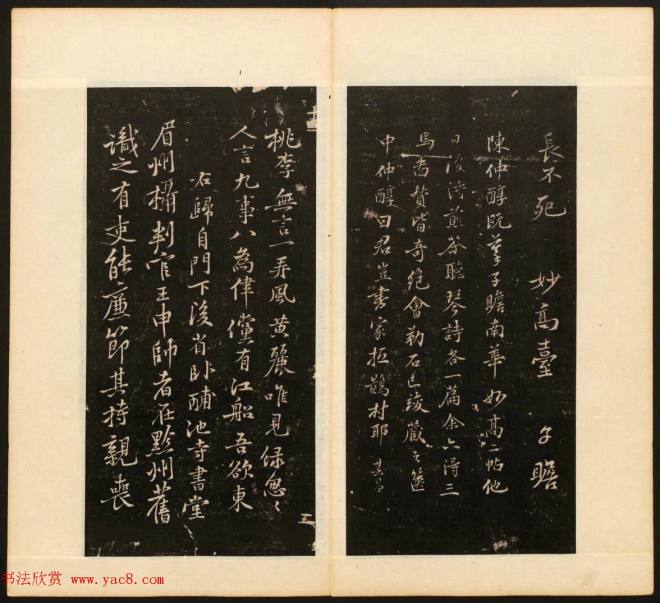 長不死 妙高臺 子瞻
陳仲醇既摹子瞻南華妙高二帖他
日後得煎茶聽琴詩各一篇余亦得三
馬圖贊皆奇絕會勒石已竣藏之篋
中仲醇曰君豈書家拉村耶 其昌
桃李無言一再風黃鸝唯見綠怱〻
人言九事八為律儻有江船吾欲東
右歸自門下後省臥酺池寺書堂
眉州攝判官王申師者在黔州舊
識之有吏能廉節其持親喪
三
书法欣赏 www.yac8.com